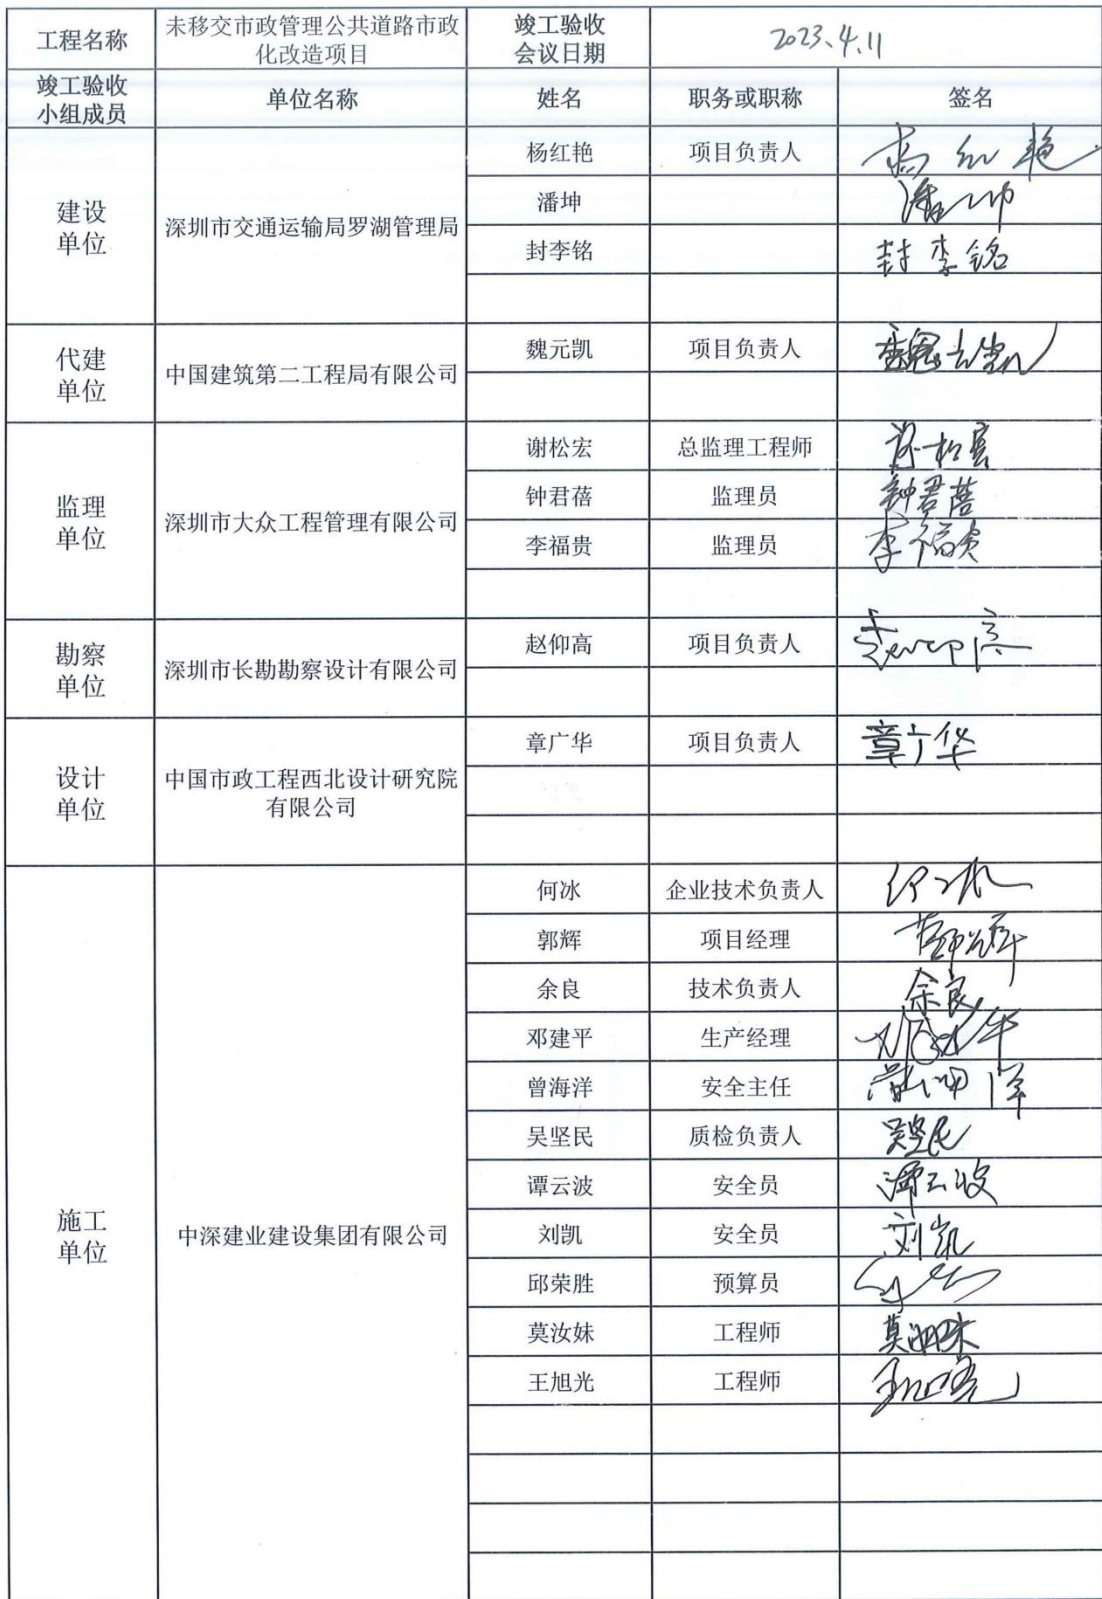 工程名称 未移交市政管理公共道路市政 竣工验收 2023.4.11
化改造项目 会议日期
竣工验收 单位名称 姓名 职务或职称 签名
小组成员
建设
单位
深圳市交通运输局罗湖管理局
杨红艳 项目负责人 杨红艳
潘坤 潘坤
封李铭 封李铭
代建
单位
中国建筑第二工程局有限公司
魏元凯 项目负责人 魏元凯
监理
单位
深圳市大众工程管理有限公司
谢松宏 总监理工程师 谢松宏
钟君蓓 监理员 钟君蓓
李福贵 监理员 李福贵
勘察
单位
深圳市长勘勘察设计有限公司
赵仰高 项目负责人 赵仰高
设计
单位
中国市政工程西北设计研究院
有限公司
章广华 项目负责人 章广华
施工
单位
中深建业建设集团有限公司
何冰 企业技术负责人 何冰
郭辉 项目经理
余良 技术负责人 余良
邓建平 生产经理
曾海洋 安全主任 曾海洋
吴坚民 质检负责人 吴坚民
谭云波 安全员 谭云波
刘凯 安全员 刘凯
邱荣胜 预算员
莫汝妹 工程师 莫汝妹
王旭光 工程师 王旭光